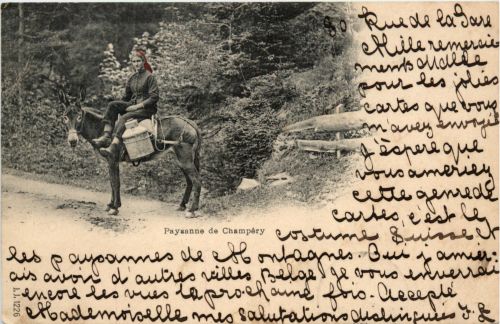 80 Rue de la Gare
Mille remercie
ments Mdlle
pour les jolies
cartes que vous
m'avez envoyés
J'éspère que
vous ameriez
cette genre de
cartes, c'est le
costume Suisse et
Paysanne de Champéry
les paysannes de Montagnes. Oui j'amer-
ais avoir d'autres villes Belge. Je vous enverrai
encore les vues la prochaine fois. Accepté
Mademoiselle mes salutations distinguées J. G
L.L. 1226